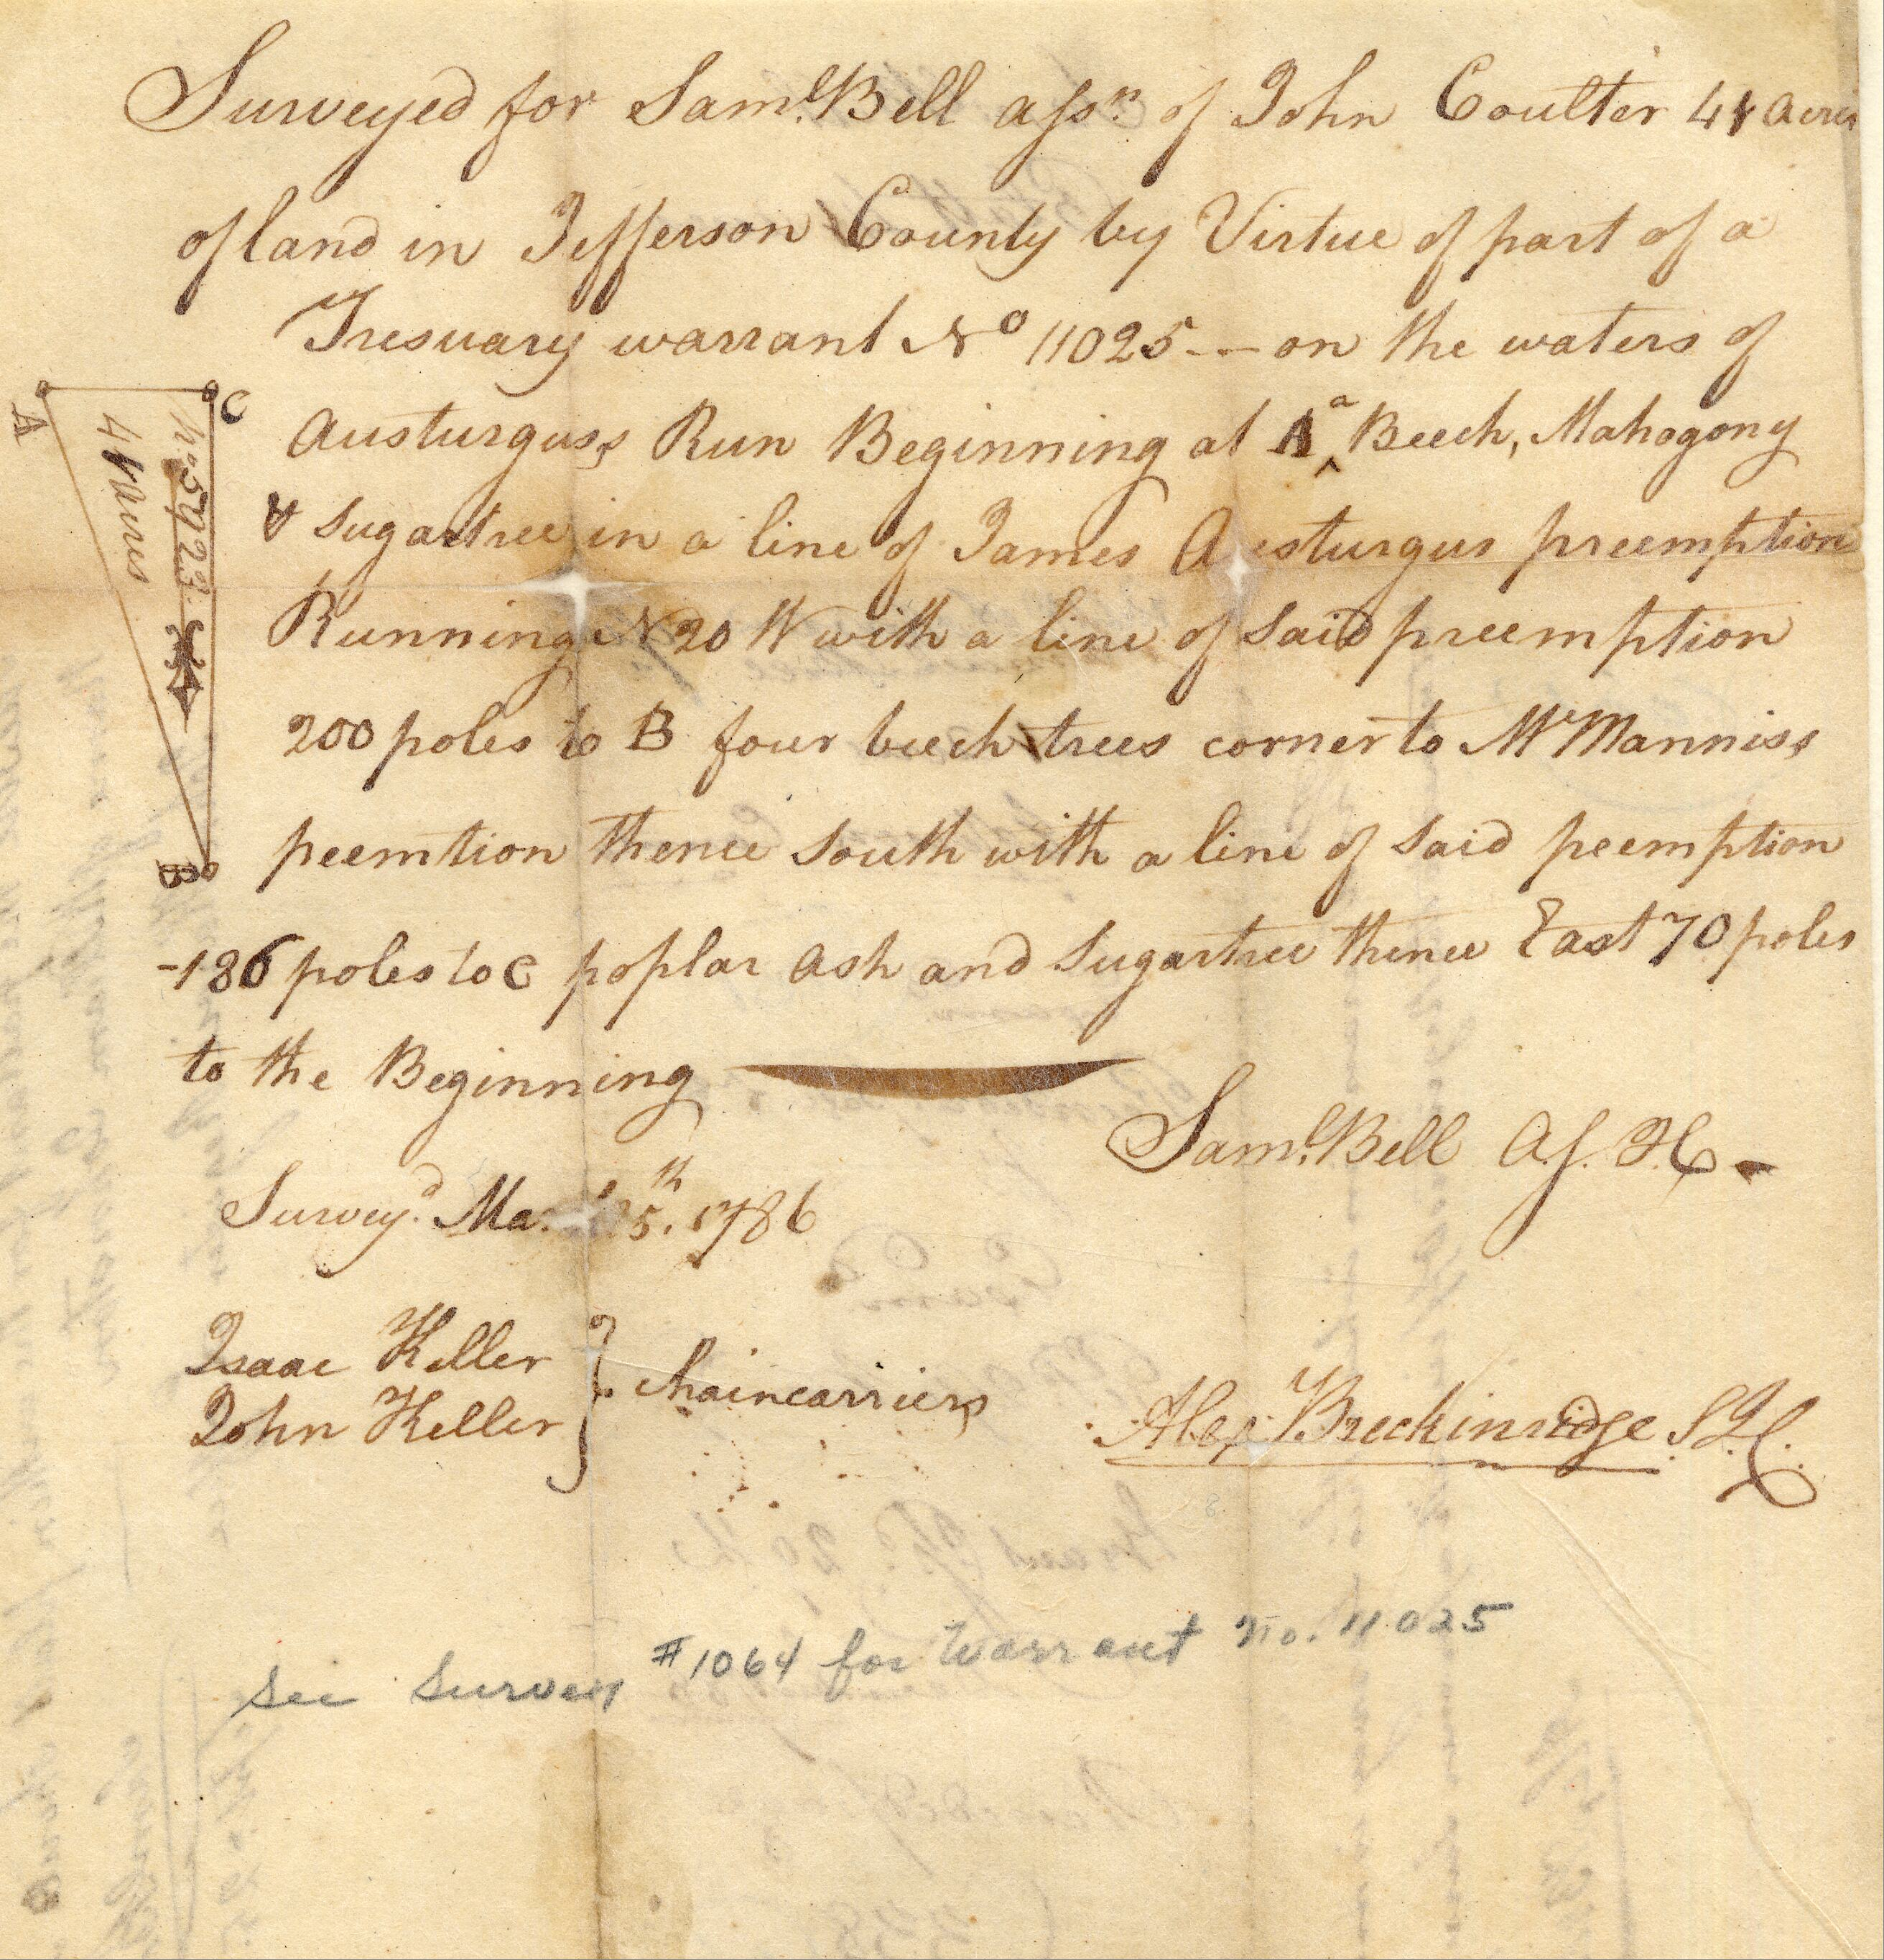 Surveyed for Saml. Bell assn. of John Coulter 41 acres
of land in Jefferson County by Virtue of part of a
Tresuary warrant No 11025 -- on the waters of
Austurguss Run Beginning at A a Beech, Mahogony
& Sugartree in a line of James Austurgus preemption
Running N 20 W with a line of said preemption
200 poles to B four beech trees corner to McManniss
peemtion thence South with a line of said peemption
-186 poles to C poplar ash and Sugartree thence East 70 poles
to the Beginning
Saml. Bell A.S. J.C
Survey.d 25th. 1786
Isaac Keller
John Keller } Chaincarriers
Alex. Breckinridge S.J.C.
See Survey #1064 for Warrant No. 11025
A
C
B
No. 5923
41 acres